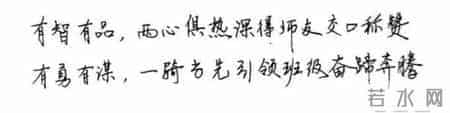 有智有品，两心俱热深得师友交口称赞
有勇有谋，一骑当先引领班级奋蹄奔腾
若水网